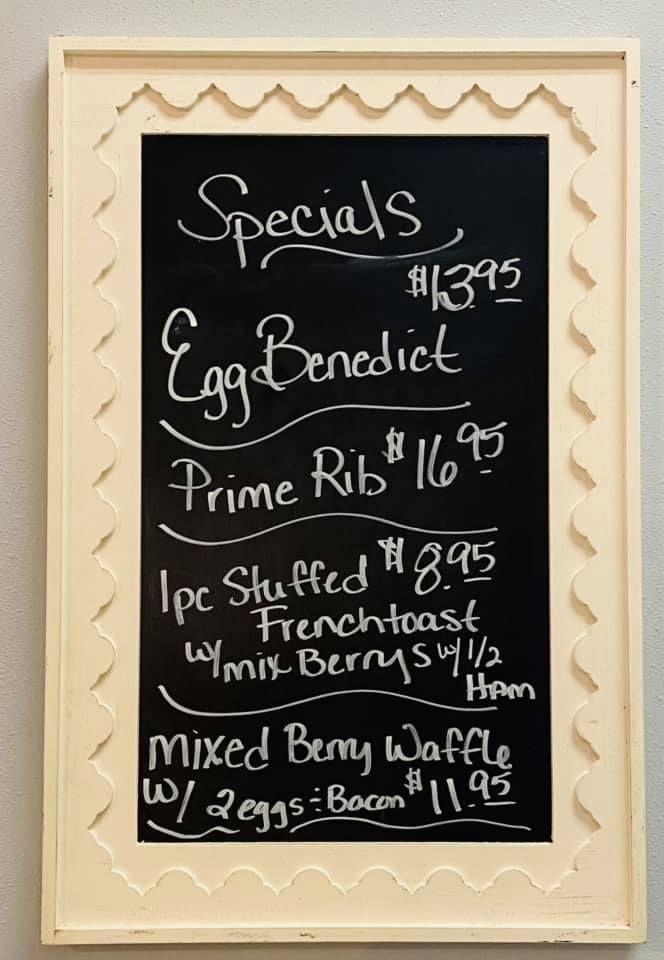 Specials
$13.95
Egg Benedict
Prime Rib $16.95
1pc Stuffed $8.95
Frenchtoast
w/ mix Berrys w/ 1/2
Ham
mixed Berry Waffle
W/ 2 eggs & Bacon $11.95